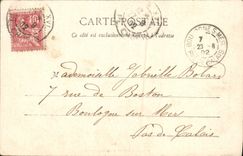 CARTE POSTALE
Ce côté est exclusivement réservé à l'adresse
7
23-8
02
Mademoiselle Gabrielle Bobard
7 rue de Boston
Boulogne sur Mer
Pas de Calais